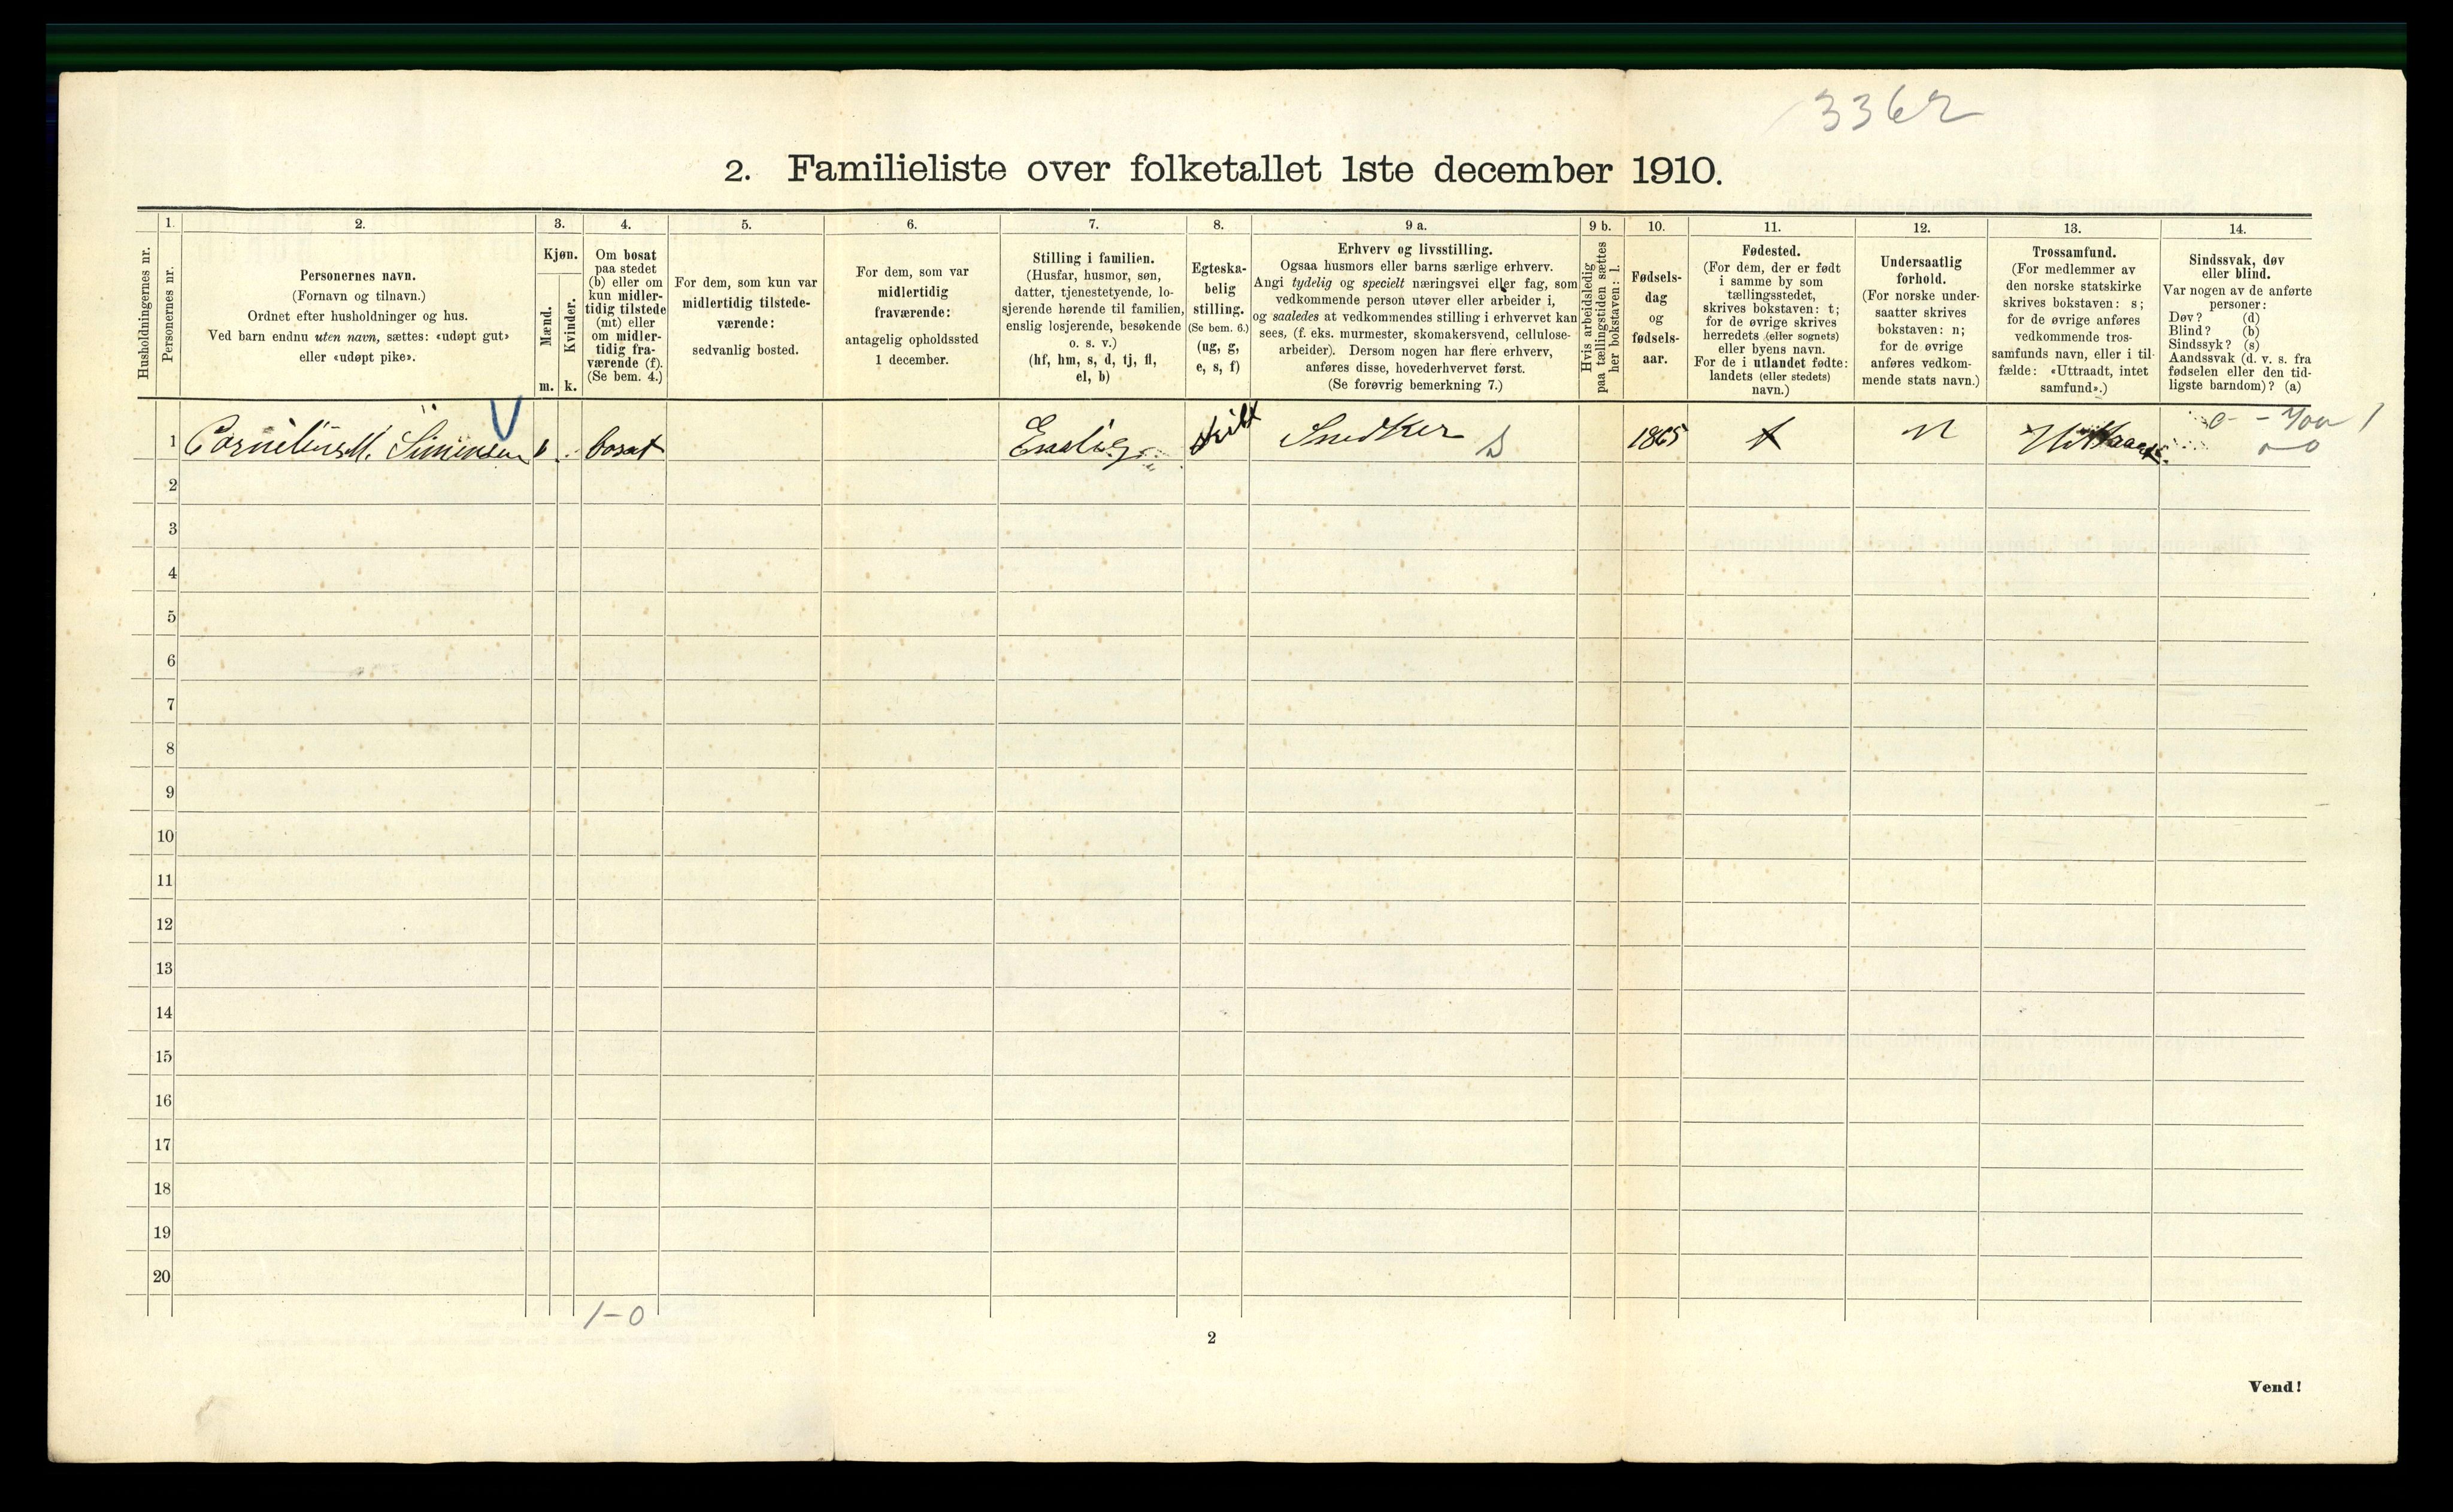 3362
2. Familieliste over folketallet 1ste december 1910.
Husholdningernes nr.
1.
Personernes nr.
2.
Personernes navn.
(Fornavn og tilnavn.)
Ordnet efter husholdninger og hus.
Ved barn endnu uten navn, sættes: «udøpt gut»
eller «udøpt pike».
3.
Kjøn.
Mænd.
Kvinder.
m. k.
4.
Om bosat
paa stedet
(b) eller om
kun midler-
tidig tilstede
(mt) eller
om midler-
tidig fra-
værende (f).
(Se bem. 4.)
5.
For dem, som kun var
midlertidig tilstede-
værende:
sedvanlig bosted.
6.
For dem, som var
midlertidig
fraværende:
antagelig opholdssted
1 december.
7.
Stilling i familien.
(Husfar, husmor, søn,
datter, tjenestetyende, lo-
sjerende hørende til familien,
enslig losjerende, besøkende
o. s. v.)
(hf, hm, s, d, tj, fl,
el, b)
8.
Egteska-
belig
stilling.
(Se bem. 6.)
(ug, g,
e, s, f)
9 a.
Erhverv og livsstilling.
Ogsaa husmors eller barns særlige erhverv.
Angi tydelig og specielt næringsvei eller fag, som
vedkommende person utøver eller arbeider i,
og saaledes at vedkommendes stilling i erhvervet kan
sees, (f. eks. murmester, skomakersvend, cellulose-
arbeider). Dersom nogen har flere erhverv,
anføres disse, hovederhvervet først.
(Se forøvrig bemerkning 7.)
9 b.
Hvis arbeidsledig
paa tællingstiden sættes
her bokstaven: l.
10.
Fødsels-
dag
og
fødsels-
aar.
11.
Fødested.
(For dem, der er født
i samme by som
tællingsstedet,
skrives bokstaven: t;
for de øvrige skrives
herredets (eller sognets)
eller byens navn.
For de i utlandet fødte:
landets (eller stedets)
navn.)
12.
Undersaatlig
forhold.
(For norske under-
saatter skrives
bokstaven: n;
for de øvrige
anføres vedkom-
mende stats navn.)
13.
Trossamfund.
(For medlemmer av
den norske statskirke
skrives bokstaven: s;
for de øvrige anføres
vedkommende tros-
samfunds navn, eller i til-
fælde: «Uttraadt, intet
samfund».)
14.
Sindssvak, døv
eller blind.
Var nogen av de anførte
personer:
Døv? (d)
Blind? (b)
Sindssyk? (s)
Aandssvak (d. v. s. fra
fødselen eller den tid-
ligste barndom)? (a)
1 Cornelius M. Simensen bosat Enslig skilt Snedker s 1865 t n
2
3
4
5
6
7
8
9
10
11
12
13
14
15
16
17
18
19
20
1-0
2
Vend!